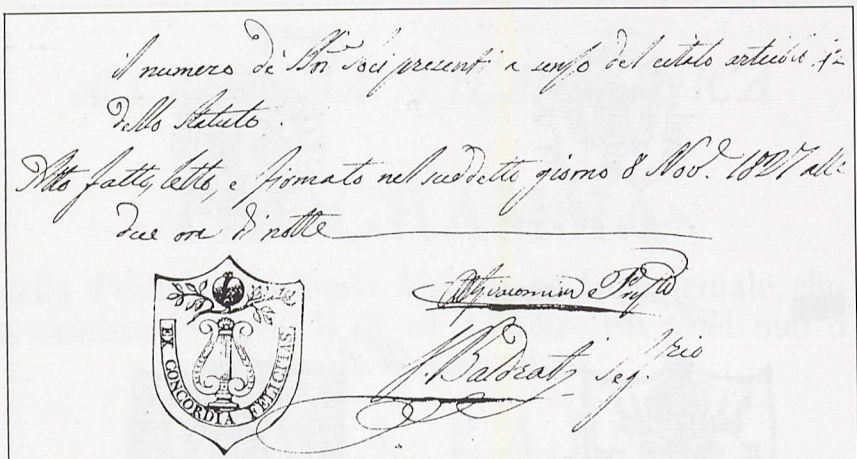 il numero di Soci presenti a senso del citato articolo
dello Statuto
Atto fatto, letto, e firmato nel suddetto giorno 8 Nov.e 1827 alle
due ore di notte
Seg.rio
EX CONCORDIA FELICITAS